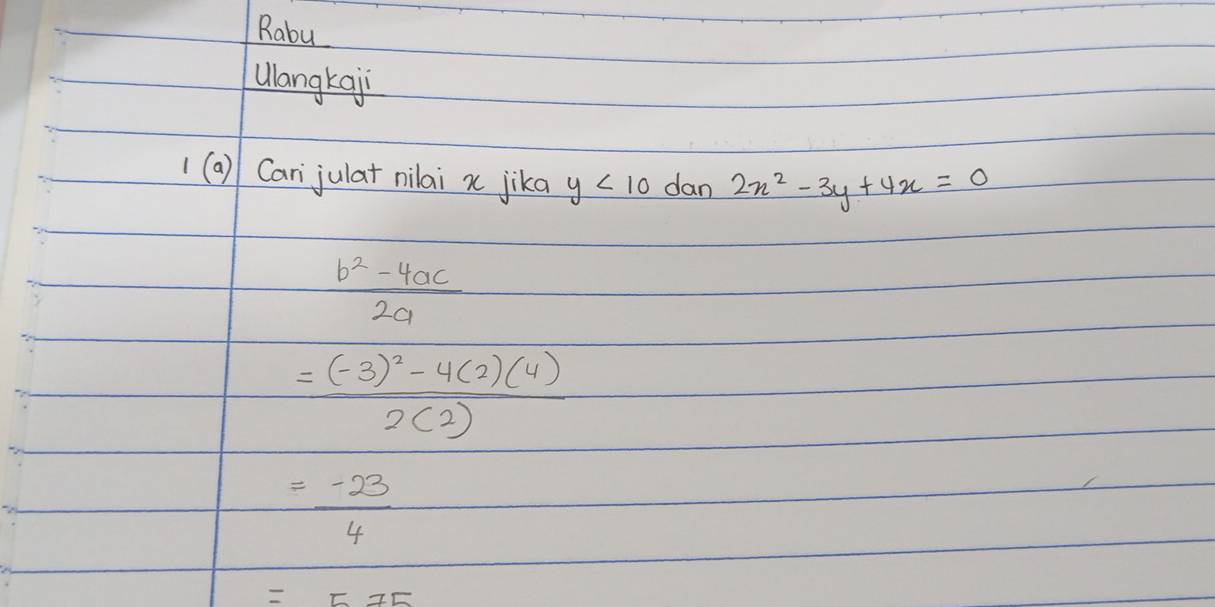 Rabu
Ulangkaji
1 (a) Cari julat nilai x jika y < 10 dan 2x² - 3y + 4x = 0
b² - 4ac
2a
= (-3)² - 4(2)(4)
2(2)
= -23
4
= 5.75